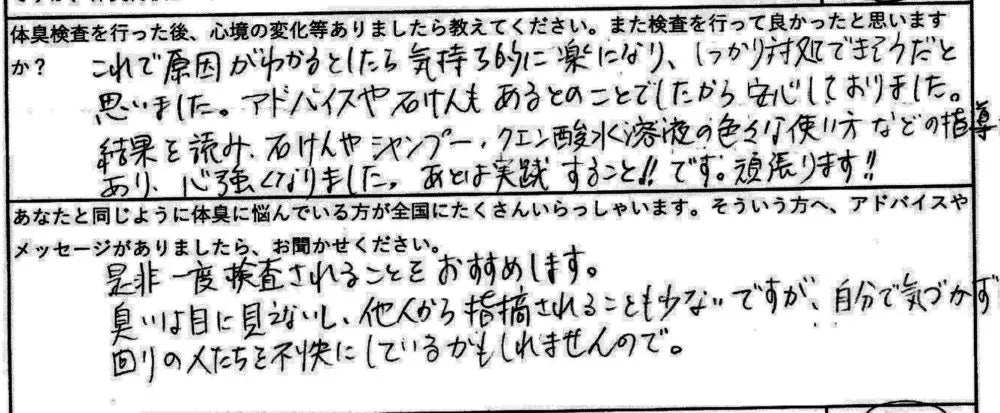 体臭検査を行った後、心境の変化等ありましたら教えてください。また検査を行って良かったと思います
か？ これで原因がわかるとしたら気持ち的に楽になり、しっかり対処できそうだと
思いました。アドバイスや石けんもあるとのことでしたから安心しておりました。
結果を読み、石けんやシャンプー、クエン酸水溶液の色々な使い方などの指導
あり、心強くなりました。あとは実践すること!!です。頑張ります!!
あなたと同じように体臭に悩んでいる方が全国にたくさんいらっしゃいます。そういう方へ、アドバイスや
メッセージがありましたら、お聞かせください。
是非一度検査されることをおすすめします。
臭いは目に見えないし、他人から指摘されることも少ないですが、自分で気づかず
回りの人たちを不快にしているかもしれませんので。